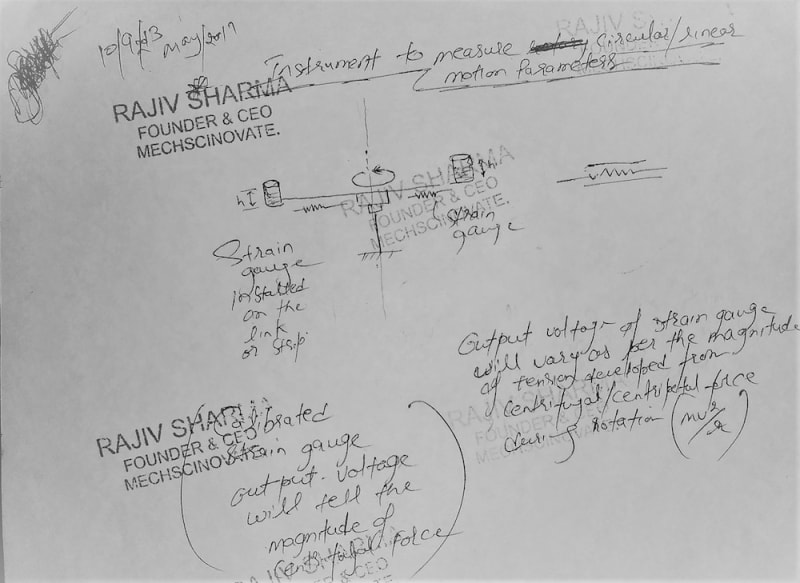 May/2017
Instrument to measure circular/linear
motion Parameters
RAJIV SHARMA
FOUNDER & CEO
MECHSCINOVATE.
RAJIV S
h
h
RAJIV SHARMA
FOUNDER & CEO
MECHSCINOVATE.
Strain
gauge
Strain
gauge
installed
on the
link
or strip.
Output voltage of strain gauge
will vary as per the magnitude
of tension developed from
centrifugal/centripetal force
during rotation (mv²/r)
RAJIV SHARMA
FOUNDER & CEO
MECHSCINOVATE.
RAJIV SHARMA
FOUNDER & CEO
MECHSCINOVATE.
(Calibrated
Strain gauge
output voltage
will tell the
magnitude of
centrifugal force)
RAJIV SHARMA
FOUNDER & CEO